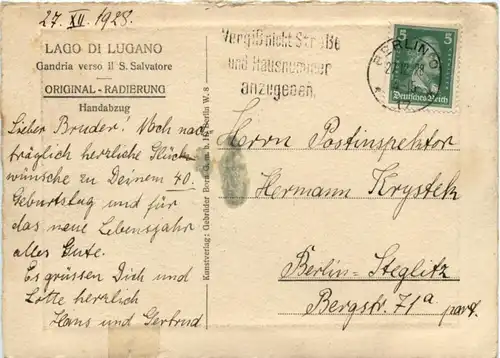 27. XII. 1928.
LAGO DI LUGANO
Gandria verso il S. Salvatore
ORIGINAL-RADIERUNG
Handabzug
Lieber Bruder! Noch nach
träglich herzliche Glück-
wünsche zu Deinem 40.
Geburtstag und für
das neue Lebensjahr
alles Gute.
Es grüssen Dich und
Lotte herzlich
Hans und Gertrud
Kunstverlag: Gebrüder G.m.b.H. Berlin W. 8
Vergiß nicht Straße
und Hausnummer
anzugeben.
BERLIN
5 5
Deutsches Reich
Herrn Postinspektor
Hermann Krystek
Berlin-Steglitz
Bergstr. 71a part.